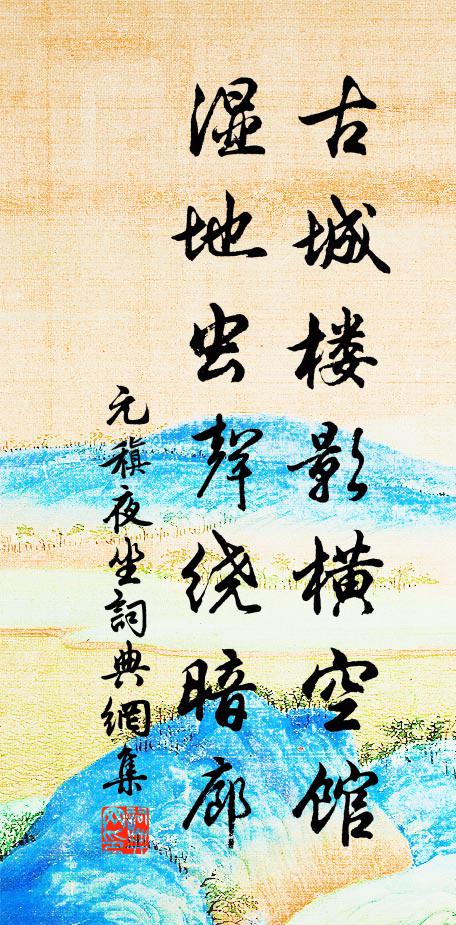 古城楼影横空馆
湿地虫声绕暗廊
元稹夜坐詞典網集